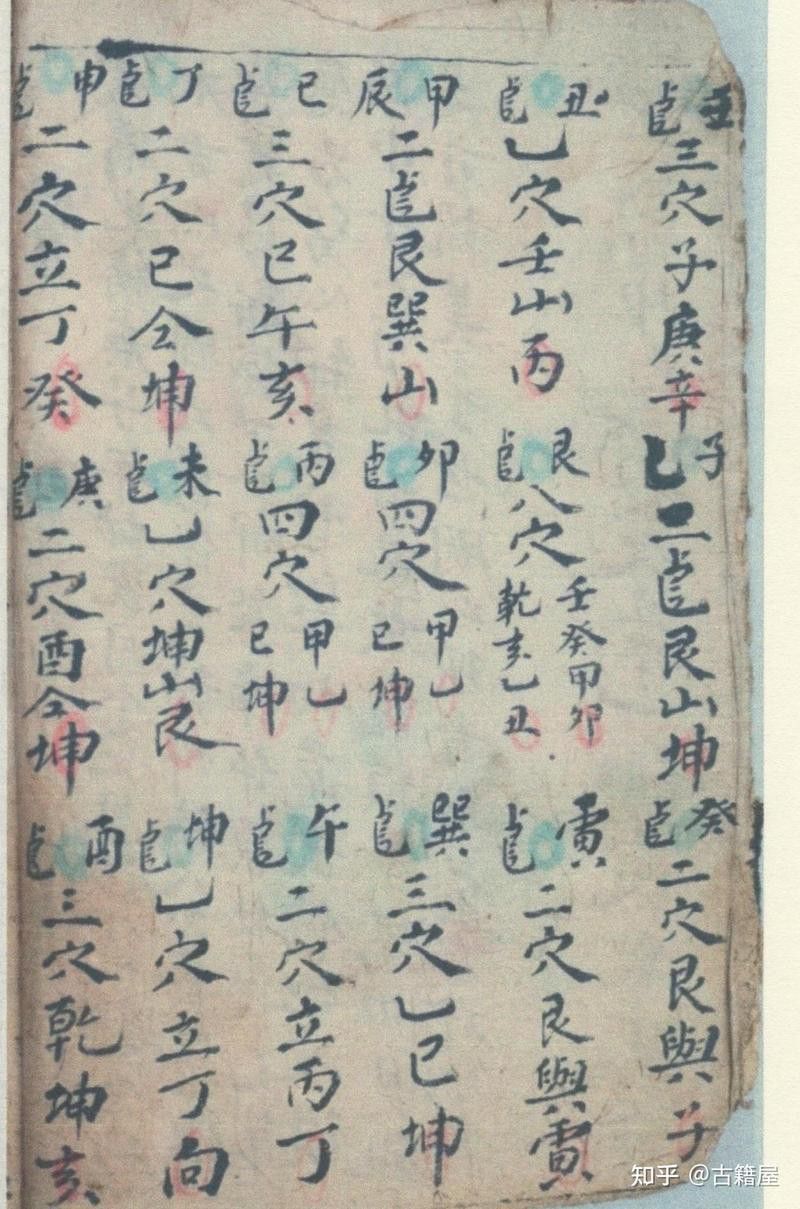 壬龍三穴子庚辛子乙二龍艮山坤癸龍二穴艮與子
丑龍乙穴壬山丙艮龍八穴壬癸甲卯乾亥乙丑寅龍二穴艮與寅
甲辰二龍艮巽山卯龍四穴甲乙巳坤巽龍三穴乙巳坤
巳龍三穴巳午亥丙龍四穴甲乙巳坤午龍二穴立丙丁
丁龍二穴巳仝坤未龍乙穴坤山艮坤龍乙穴立丁向
申龍二穴立丁癸庚龍二穴酉仝坤酉龍三穴乾坤亥
知乎 @古籍屋